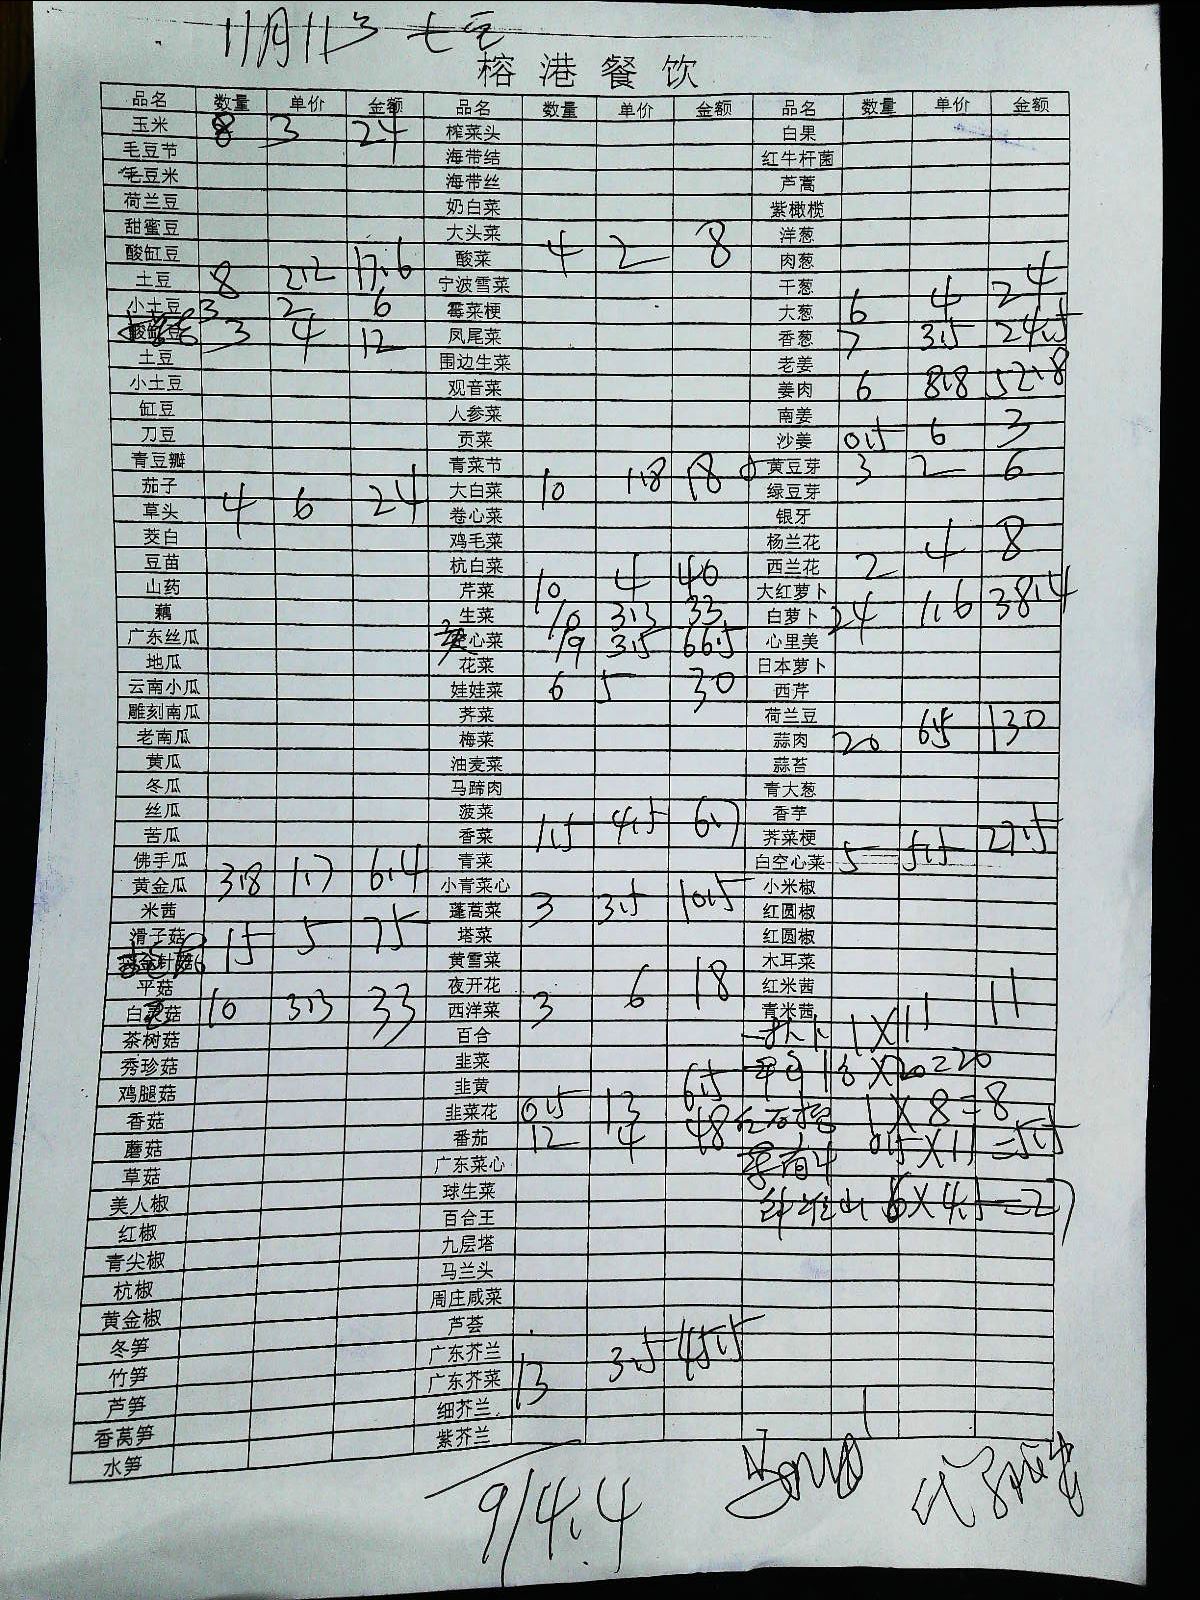 11月11号
榕港餐饮
品名 数量 单价 金额 品名 数量 单价 金额 品名 数量 单价 金额
玉米 8 3 24 榨菜头 白果
毛豆节 海带结 红牛杆菌
毛豆米 海带丝 芦蒿
荷兰豆 奶白菜 紫橄榄
甜蜜豆 大头菜 洋葱
酸缸豆 酸菜 4 2 8 肉葱
土豆 8 2.2 17.6 宁波雪菜 干葱
小土豆 3 2 6 霉菜梗 大葱 6 4 24
3 4 12 凤尾菜 香葱 7 3.5 24.5
土豆 围边生菜 老姜
小土豆 观音菜 姜肉 6 8.8 52.8
缸豆 人参菜 南姜
刀豆 贡菜 沙姜 0.5 6 3
青豆瓣 青菜节 黄豆芽 3 2 6
茄子 大白菜 10 1.8 18 绿豆芽
草头 4 6 24 卷心菜 银牙
茭白 鸡毛菜 杨兰花
豆苗 杭白菜 西兰花 2 4 8
山药 芹菜 10 4 40 大红萝卜
藕 生菜 10 3.3 33 白萝卜 24 1.6 38.4
广东丝瓜 心菜 19 3.5 66.5 心里美
地瓜 花菜 日本萝卜
云南小瓜 娃娃菜 6 5 30 西芹
雕刻南瓜 荠菜 荷兰豆
老南瓜 梅菜 蒜肉 20 6.5 130
黄瓜 油麦菜 蒜苔
冬瓜 马蹄肉 青大葱
丝瓜 菠菜 香芋
苦瓜 香菜 1.5 4.5 6.7 荠菜梗
佛手瓜 青菜 白空心菜 5 5.5 27.5
黄金瓜 3.8 1.7 6.4 小青菜心 小米椒
米茜 蓬蒿菜 3 3.5 10.5 红圆椒
滑子菇 15 5 75 塔菜 红圆椒
黄雪菜 木耳菜
平菇 夜开花 红米茜
白灵菇 10 3.3 33 西洋菜 3 6 18 青米茜 11
茶树菇 百合 1X11
秀珍菇 韭菜 X20=20
鸡腿菇 韭黄 1X8=8
香菇 韭菜花 0.5 13 6.5 0.5X11=5.5
蘑菇 番茄 12 4 48
草菇 广东菜心 6X4.5=27
美人椒 球生菜
红椒 百合王
青尖椒 九层塔
杭椒 马兰头
黄金椒 周庄咸菜
冬笋 芦荟
竹笋 广东芥兰
芦笋 广东芥菜 13 3.5 45.5
香莴笋 细芥兰
水笋 紫芥兰
914.4